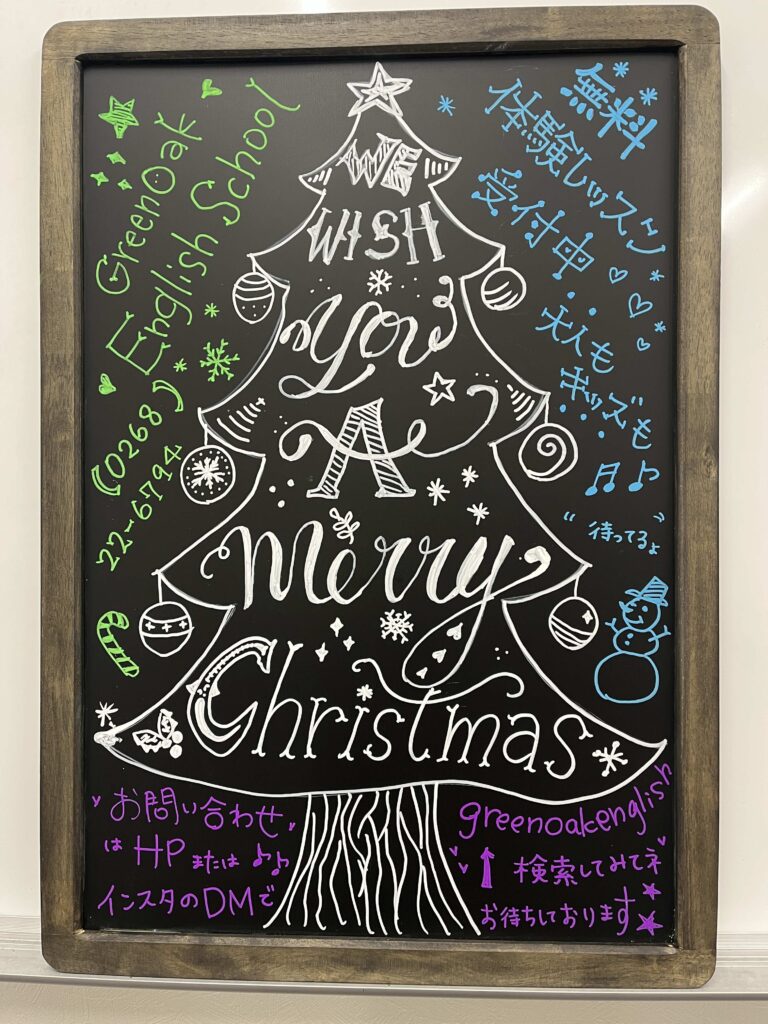 GreenOak
English School
(0268)
22-6794
無料
体験レッスン
受付中
大人も
キッズも
"待ってるよ"
WE
WISH
You
A
Merry
Christmas
お問い合わせ
は HP または
インスタのDMで
greenoakenglish
↑ 検索してみてネ
お待ちしております